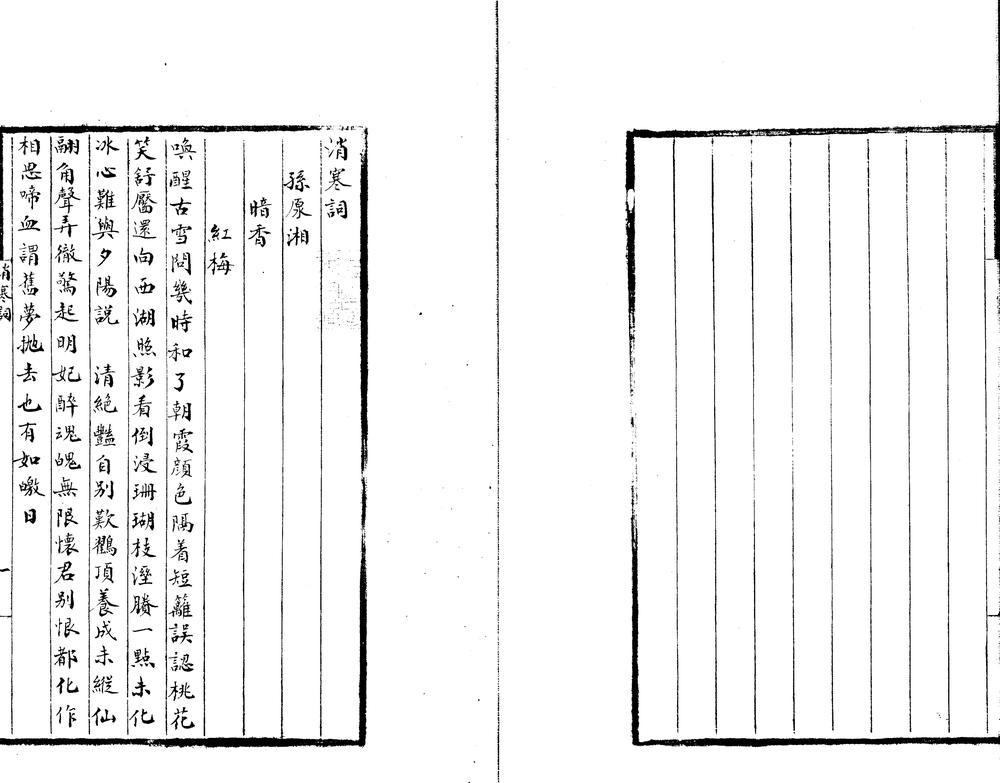 消寒詞
孫原湘
暗香
紅梅
喚醒古雪問幾時和了朝霞顏色隔着短籬誤認桃花
笑舒靨還向西湖照影看倒浸珊瑚枝溼賸一點未化
冰心難與夕陽說　清絕豔自別歎鶴頂養成未縱仙
翮角聲弄徹驚起明妃醉魂魄無限懷君別恨都化作
相思啼血謂舊夢拋去也有如皦日
消寒詞
一